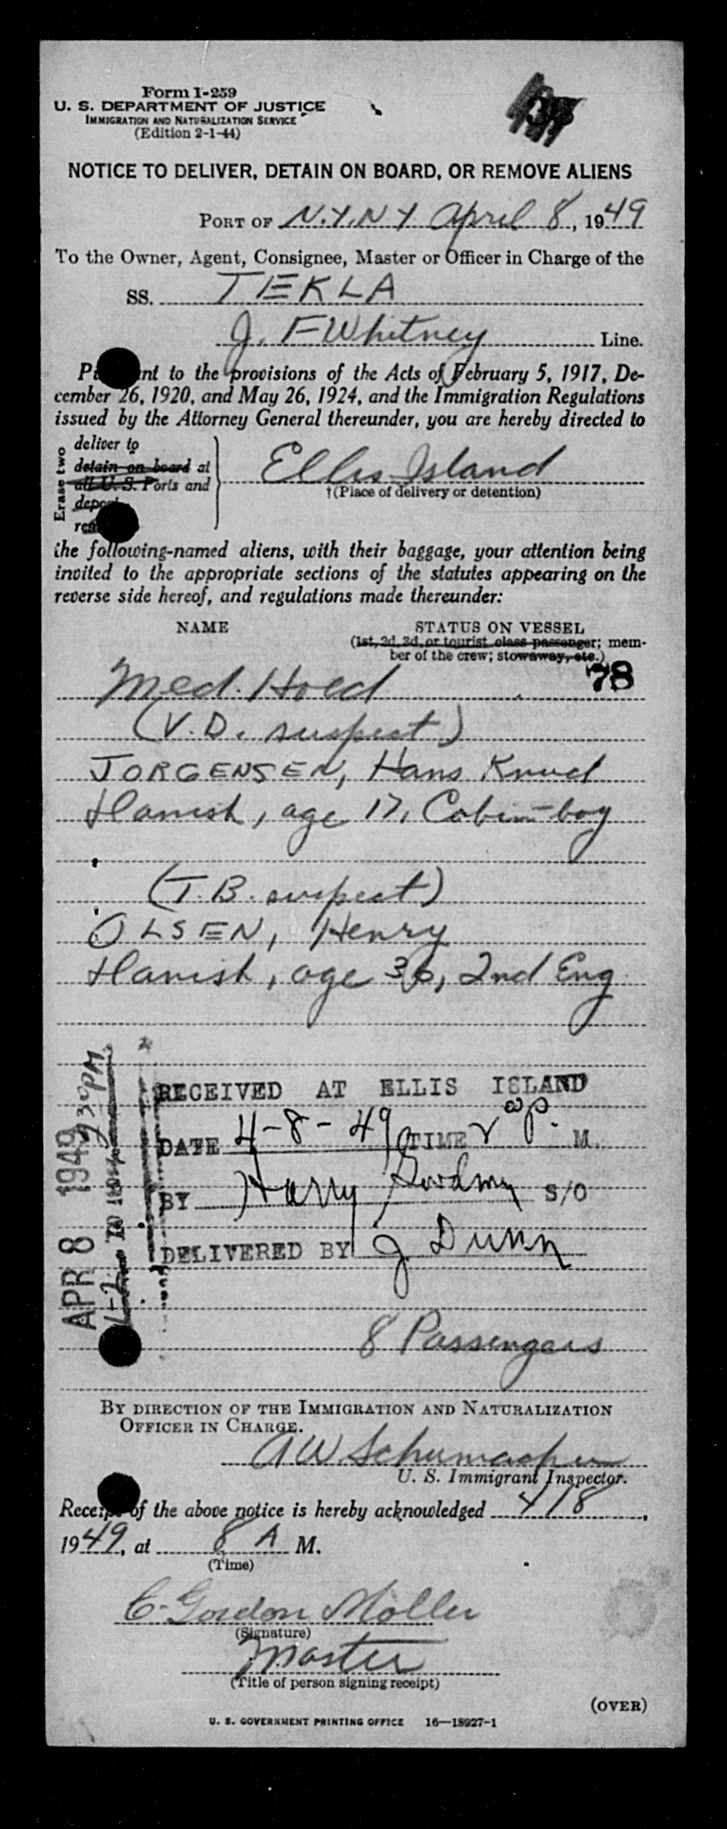 Form I-259
U. S. DEPARTMENT OF JUSTICE
IMMIGRATION AND NATURALIZATION SERVICE
(Edition 2-1-44)
NOTICE TO DELIVER, DETAIN ON BOARD, OR REMOVE ALIENS
PORT OF N.Y. N Y April 8, 1949
To the Owner, Agent, Consignee, Master or Officer in Charge of the
SS. TEKLA
J. F Whitney Line.
to the provisions of the Acts of February 5, 1917, De-
cember 26, 1920, and May 26, 1924, and the Immigration Regulations
issued by the Attorney General thereunder, you are hereby directed to
Erase two
deliver to
detain on board at
all U. S. Ports and
Ellis Island
†(Place of delivery or detention)
the following-named aliens, with their baggage, your attention being
invited to the appropriate sections of the statutes appearing on the
reverse side hereof, and regulations made thereunder:
NAME STATUS ON VESSEL
(1st, 2d, 3d, or tourist class passenger; mem-
ber of the crew; stowaway, etc.)
78
Med. Hold
(V.D. suspect)
JORGENSEN, Hans Knud
Danish, age 17, Cabin-boy
(T.B. suspect)
OLSEN, Henry
Danish, age 36, 2nd Eng
RECEIVED AT ELLIS ISLAND
DATE 4-8-49 TIME 2 P. M.
BY Harry S/O
DELIVERED BY J Dunn
APR 8 1949
8 Passengers
BY DIRECTION OF THE IMMIGRATION AND NATURALIZATION
OFFICER IN CHARGE.
A W Schumacher
U. S. Immigrant Inspector.
Receipt of the above notice is hereby acknowledged 4/8,
1949, at 8 A M.
(Time)
C. Gordon Moller
(Signature)
Master
(Title of person signing receipt)
(OVER)
U. S. GOVERNMENT PRINTING OFFICE 16—18927-1